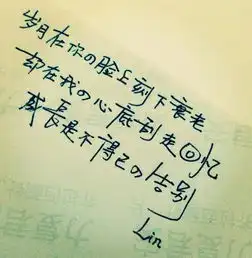 岁月在你の脸上刻下衰老
却在我の心底刮走回忆
成長是不得已の告别
Lin